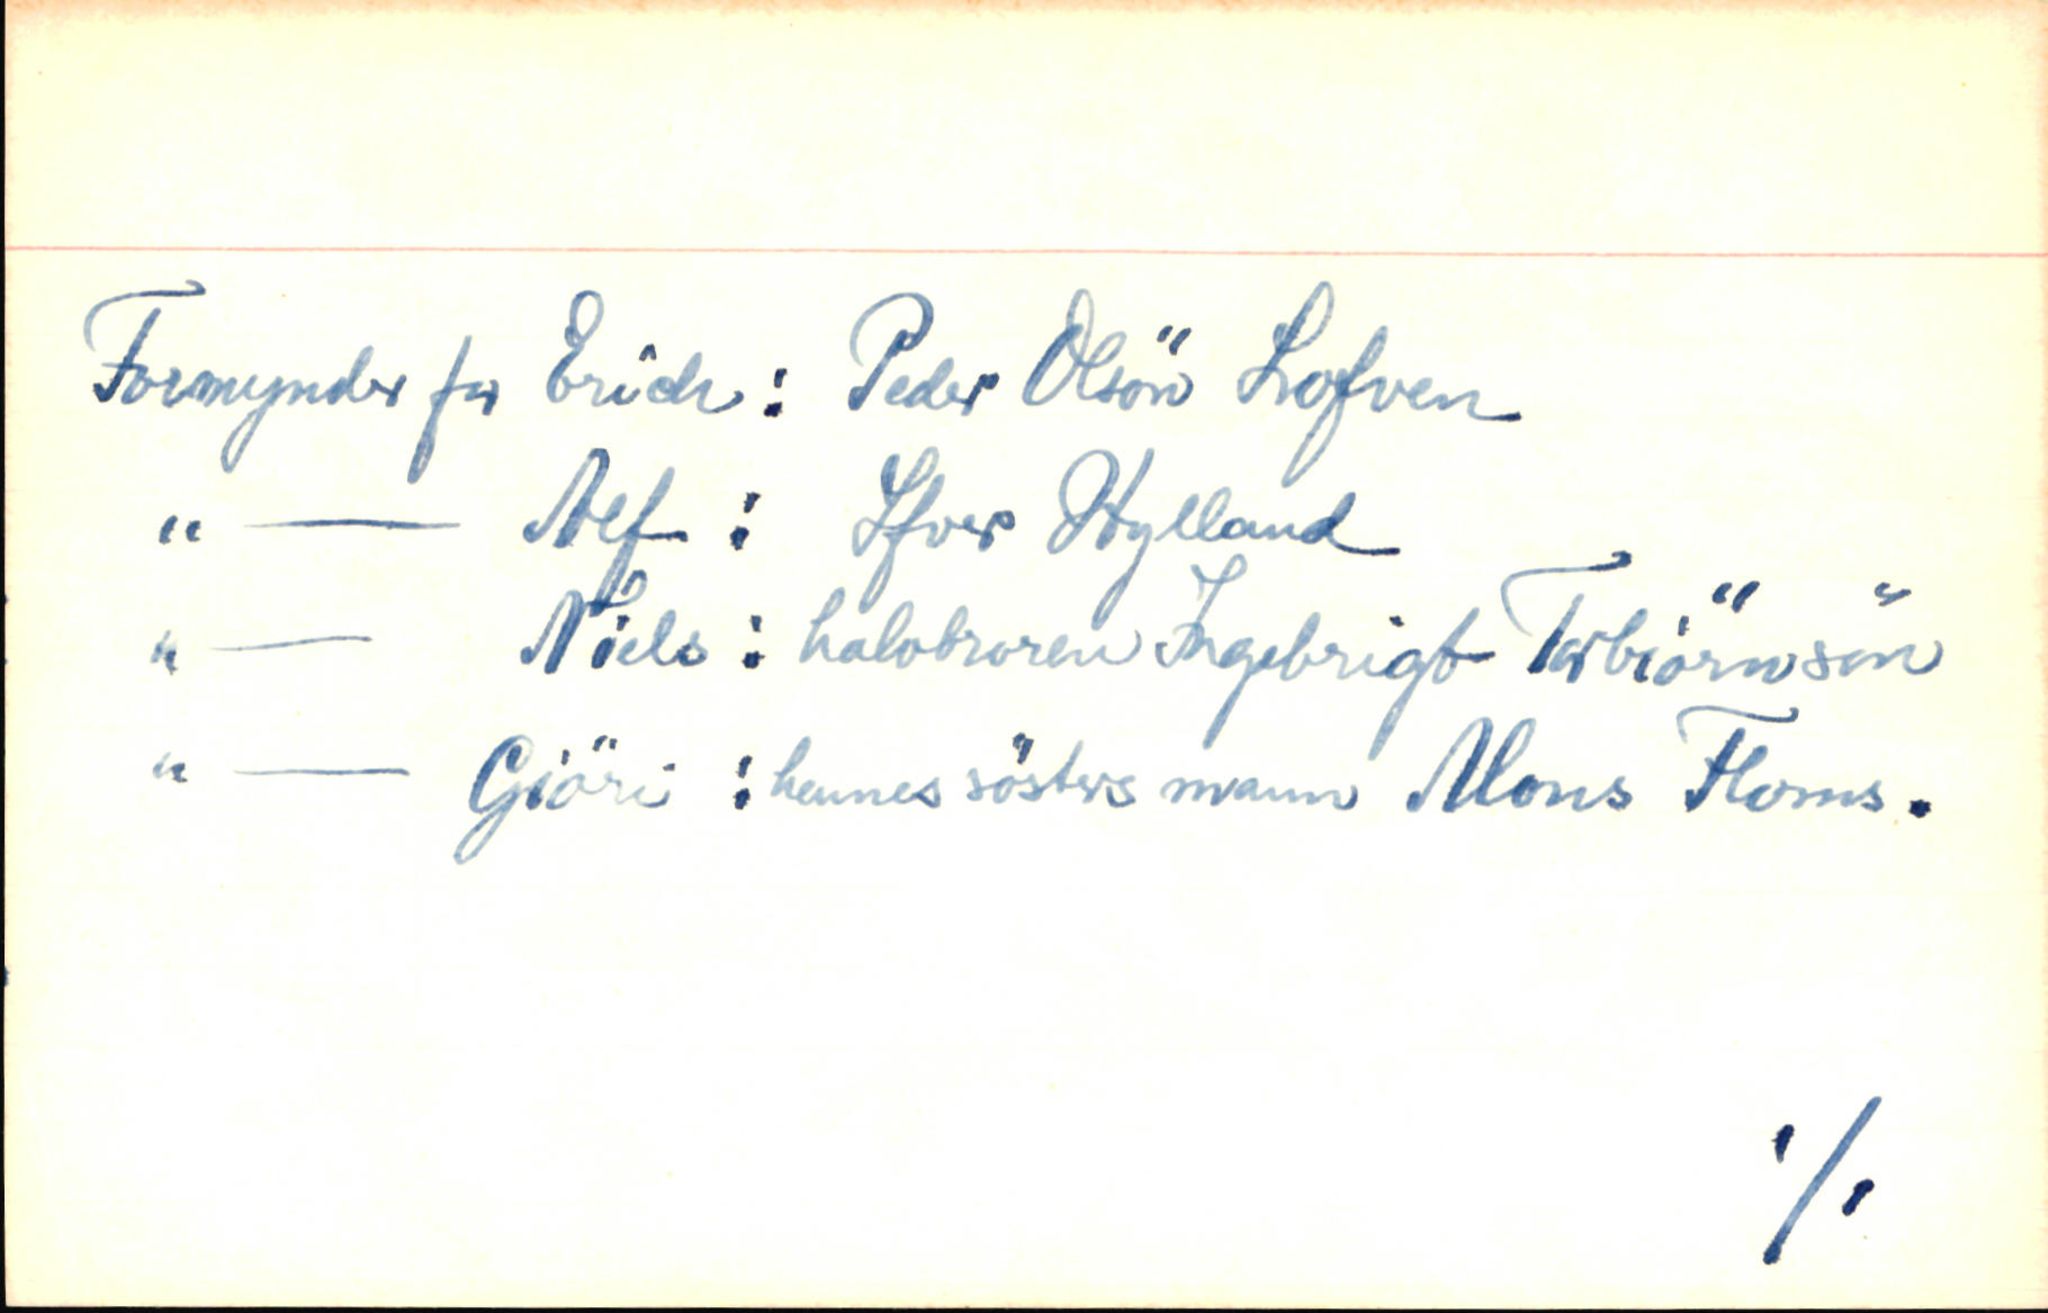 Formynder for Erich: Peder Olsön Lofven
" — Alf : Ifver Hylland
" — Niels : halvbroren Ingebrigt Torbiörnsön
" — Giöri : hennes sösters mann Mons Floms.
·/·